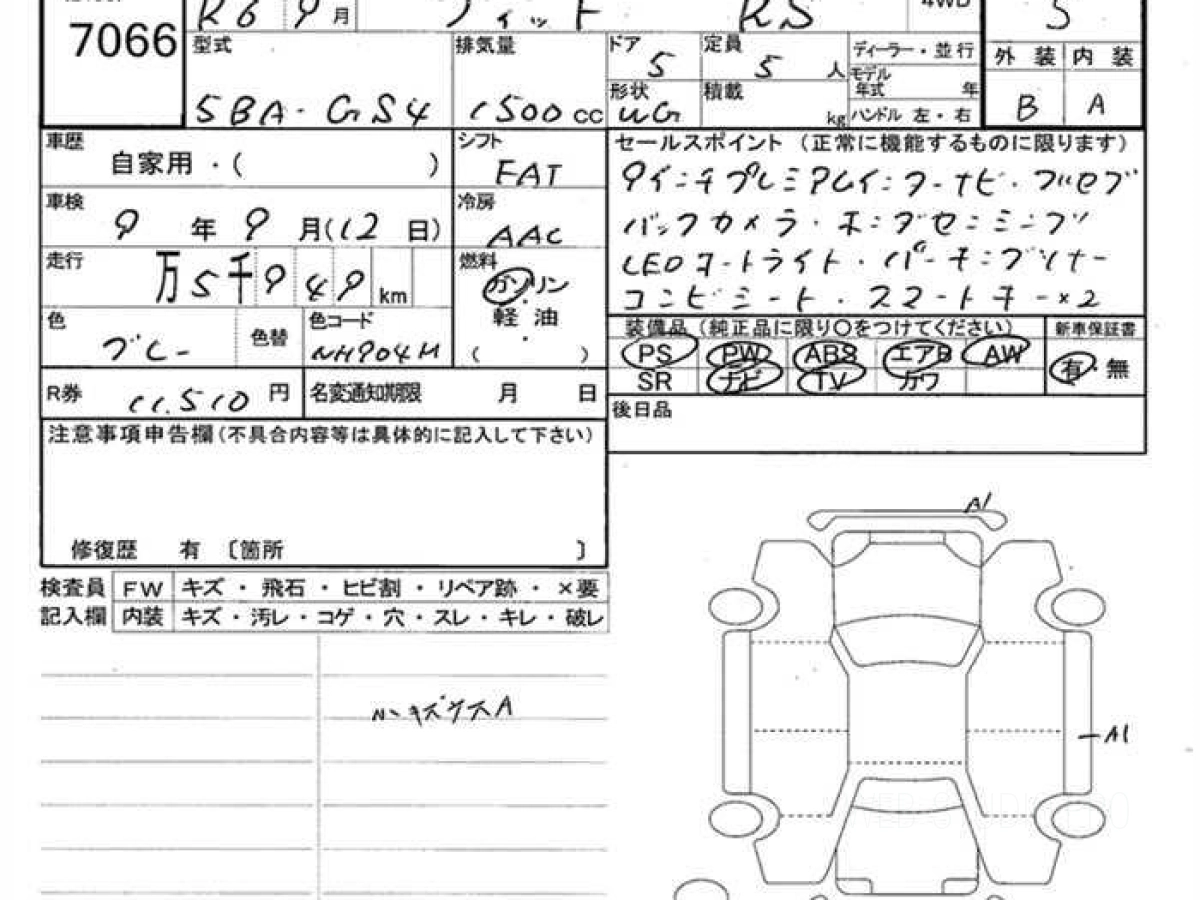 7066
R6 9月
フィット RS
4WD
5
型式 5BA-GS4
排気量 1500cc
ドア 5
定員 5人
形状
積載 kg
ディーラー・並行
モデル年式 年
ハンドル 左・右
外装 内装
B A
車歴 自家用・( )
シフト FAT
車検 9年9月(12日)
冷房 AAC
走行 万5千949km
燃料 ガソリン
軽油
( )
色
色替
色コード NH904M
R券 11,510円
名変通知期限 月 日
セールスポイント(正常に機能するものに限ります)
9インチプレミアムインターナビ・フルセグ
バックカメラ・ホンダセンシング
LEDオートライト・パーキングソナー
コンビシート・スマートキー×2
装備品(純正品に限り○をつけてください)
新車保証書
PS PW ABS エアB AW
有・無
SR ナビ TV カワ
後日品
注意事項申告欄(不具合内容等は具体的に記入して下さい)
修復歴 有 〔箇所 〕
検査員 FW キズ・飛石・ヒビ割・リペア跡・×要
記入欄 内装 キズ・汚レ・コゲ・穴・スレ・キレ・破レ
A1
A1